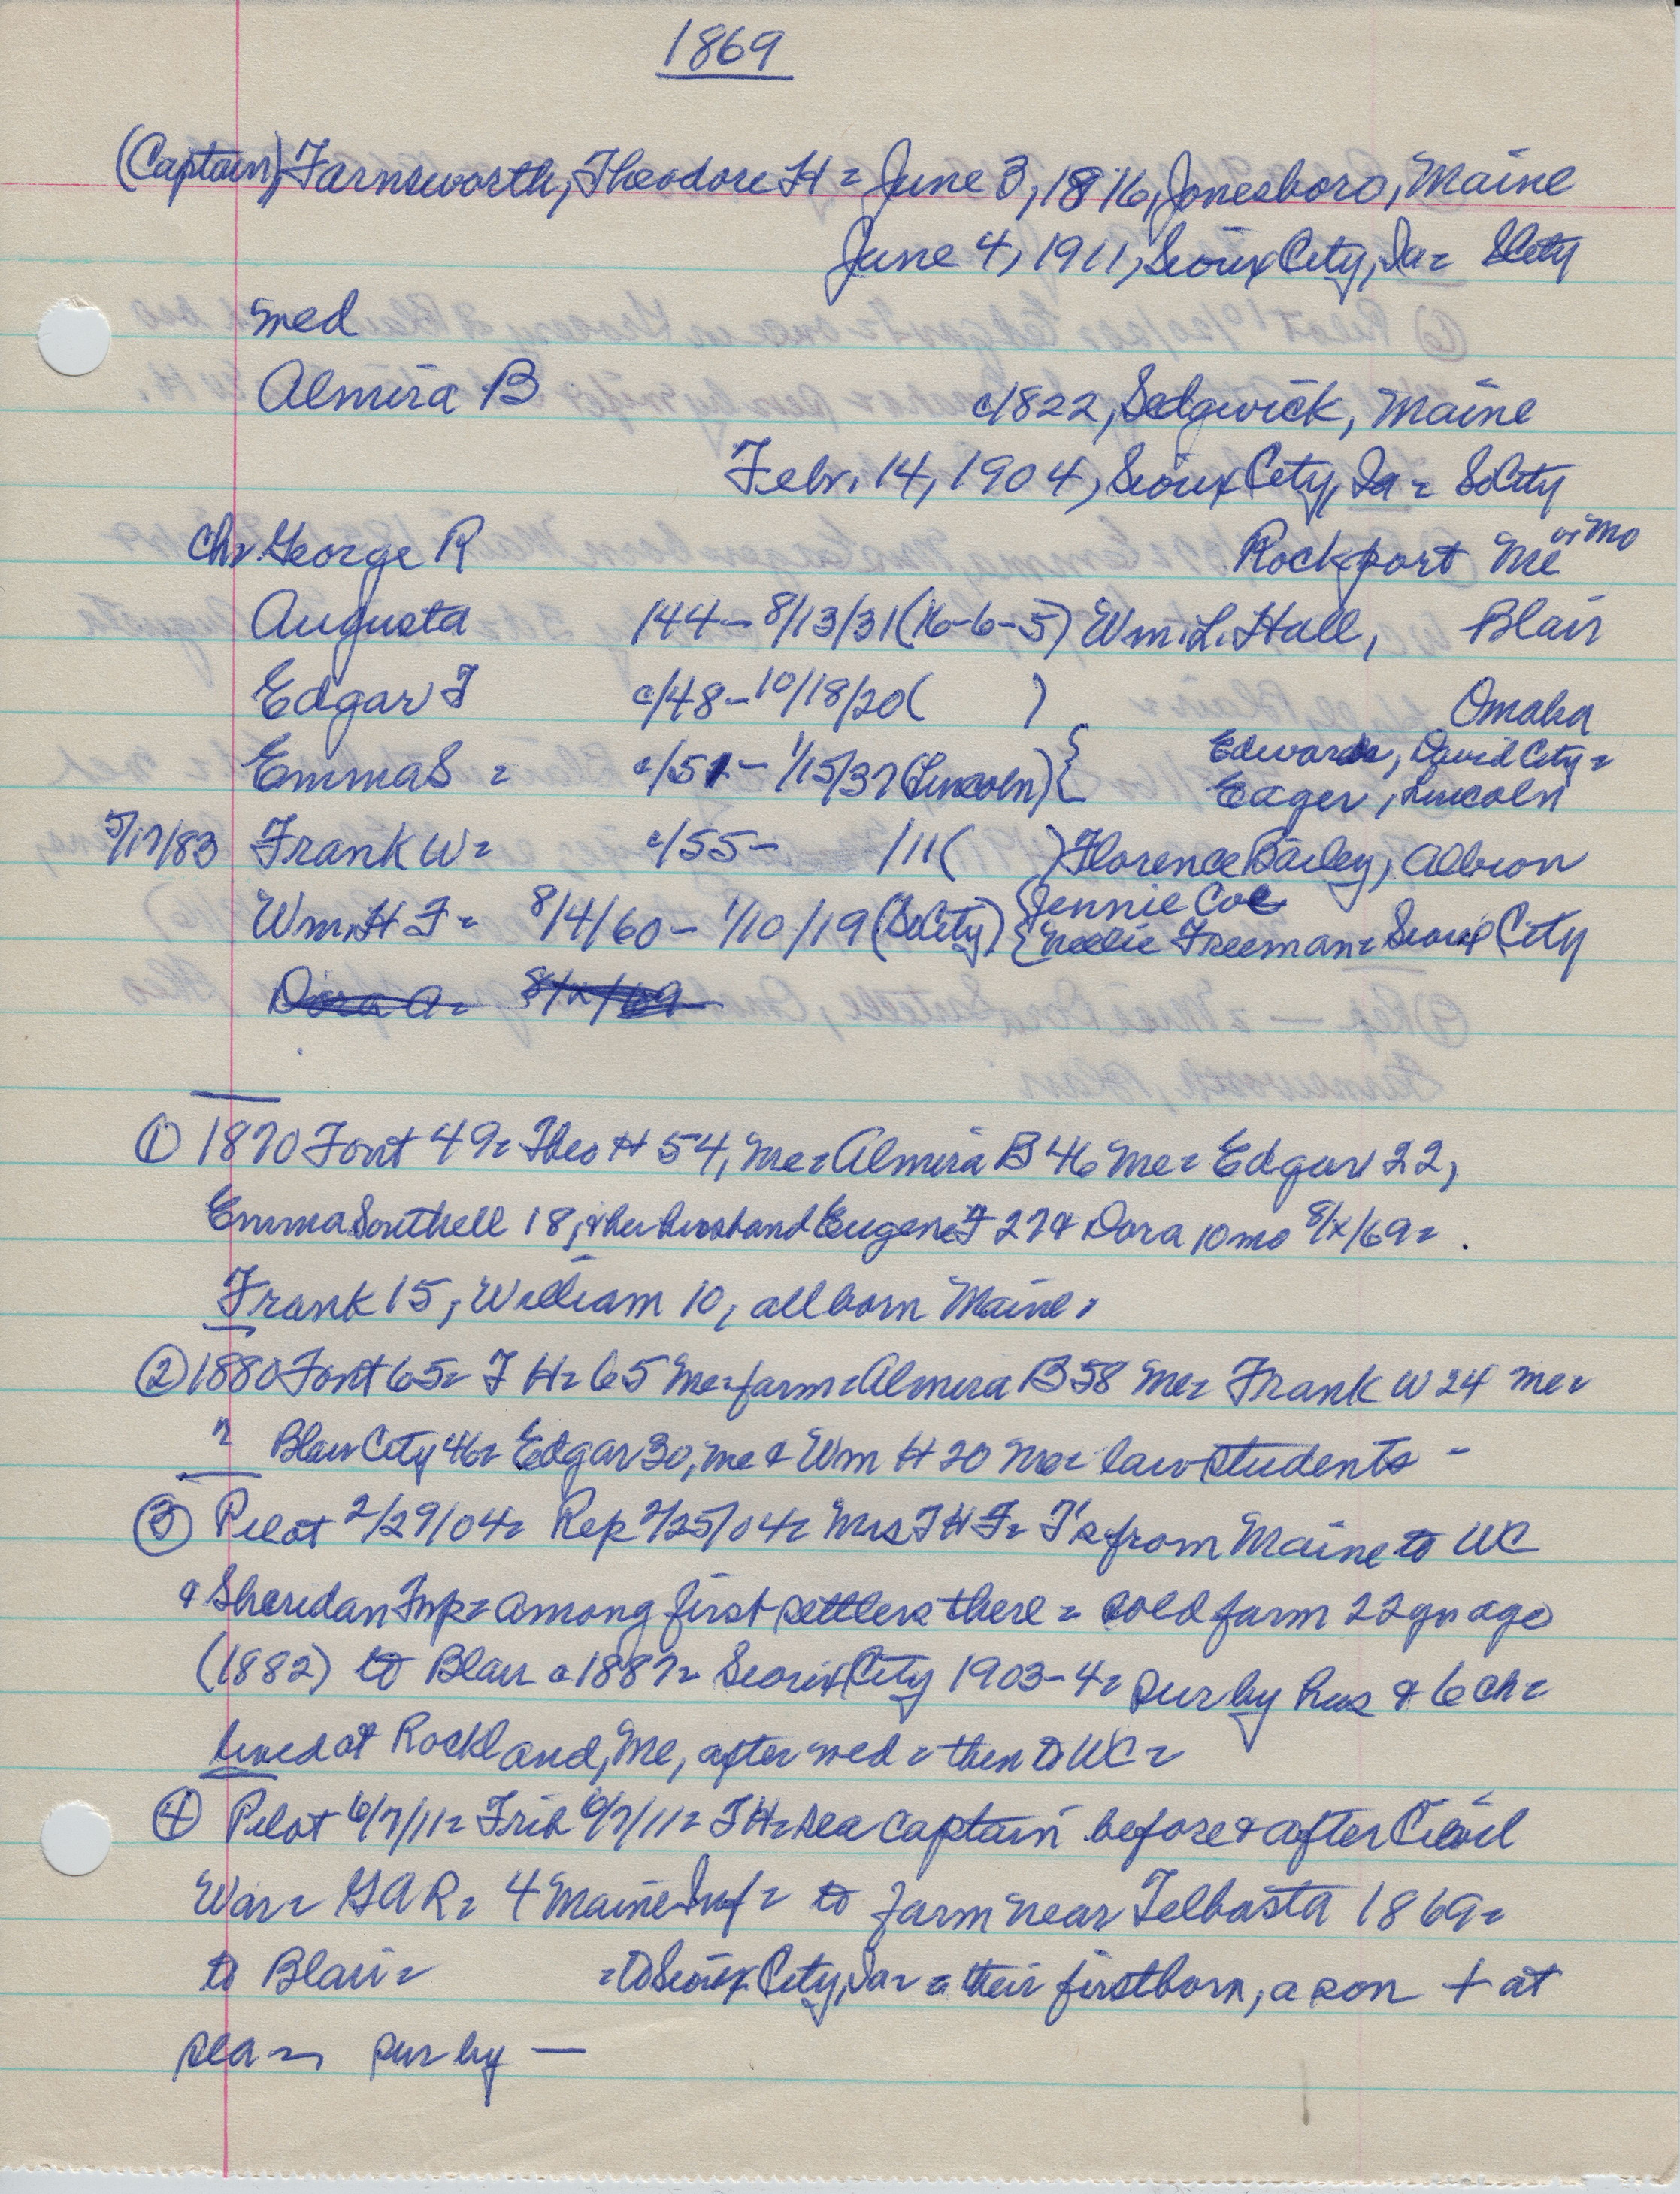 1869
(Captain) Farnsworth, Theodore H = June 3, 1816, Jonesboro, Maine
June 4, 1911, Sioux City, Ia =
med
Almira B c/1822, Sedgwick, Maine
Febr. 14, 1904, Sioux City, Ia = SoCity
Ch= George R Rockport Me or Mo
Augusta 144- 8/13/31 (16-6-5) Wm. L. Hall, Blair
Edgar F c/48 - 10/18/20 ( ) Omaha
Emma S = c/51 - 1/15/37 (Lincoln) { Edwards, David City =
Eager, Lincoln
5/17/83 Frank W = c/55 - /11 ( ) Florence Bailey, Albion
Wm. H F = 8/4/60 - 1/10/19 (SoCity) { Jennie Coe
Nellie Freeman = Sioux City
Dora A = 8/x/69
① 1870 Font 49 = Theo H 54, Me = Almira B 46 Me = Edgar 22,
Emma Southell 18, & her husband Eugene F 27 & Dora 10 mo 8/x/69 = .
Frank 15, William 10, all born Maine.
② 1880 Font 65 = T H = 65 Me = farm = Almira B 58 Me = Frank W 24 Me =
" Blair City 46 = Edgar 30, Me & Wm H 20 Me = law students -
③ Pilot 2/29/04 = Rep 2/25/04 = Mrs T H F = F's from Maine to WC
& Sheridan Twp = among first settlers there = sold farm 22 yrs ago
(1882) to Blair a 1887 = Sioux City 1903-4 = sur by hus & 6 ch =
lived at Rockland, Me, after med = then to WC =
④ Pilot 6/7/11 = Trib 6/7/11 = T H = sea captain before & after Civil
War = G A R = 4 Maine Inf = to farm near Telbasta 1869 =
to Blair = = to Sioux City, Ia = = their firstborn, a son + at
sea = sur by —